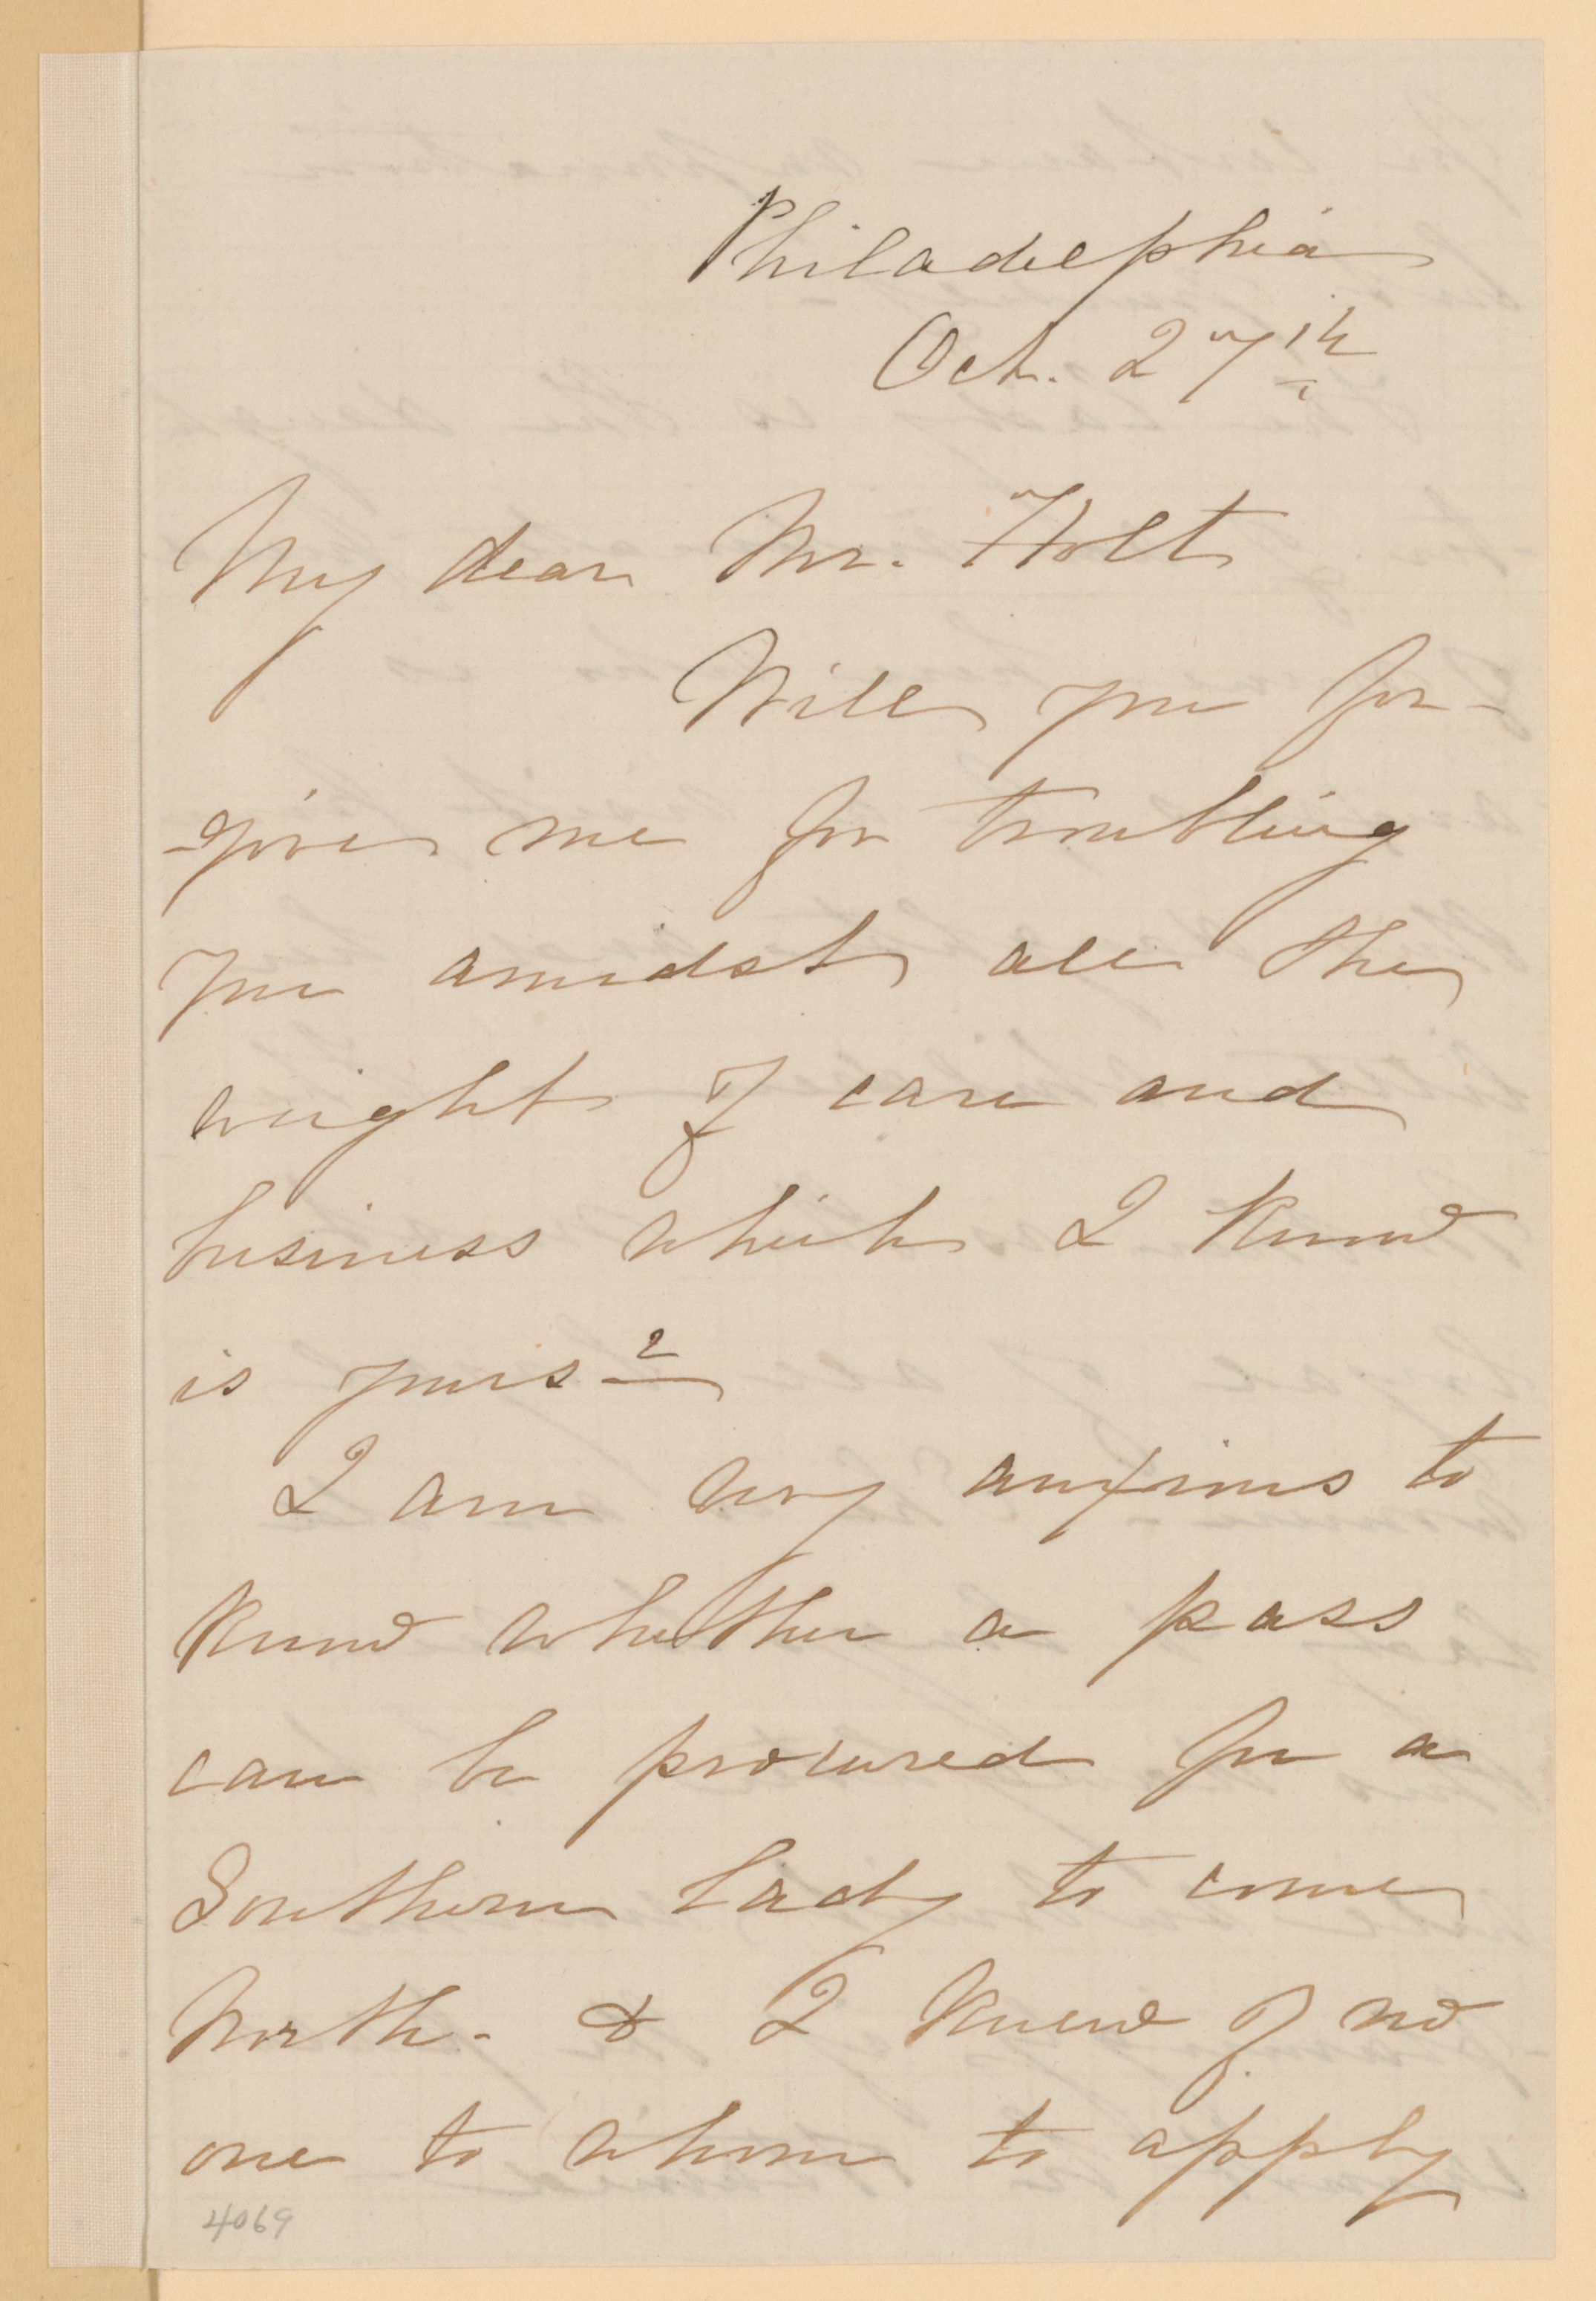 Philadelphia
Oct. 27th
My dear Mr. Holt
Will you for-
-give me for troubling
you amidst all the
weight of care and
business which I know
is yours?
I am very anxious to
know whether a pass
can be procured for a
Southern lady to come
North - & I knew of no
one to whom to apply
4069